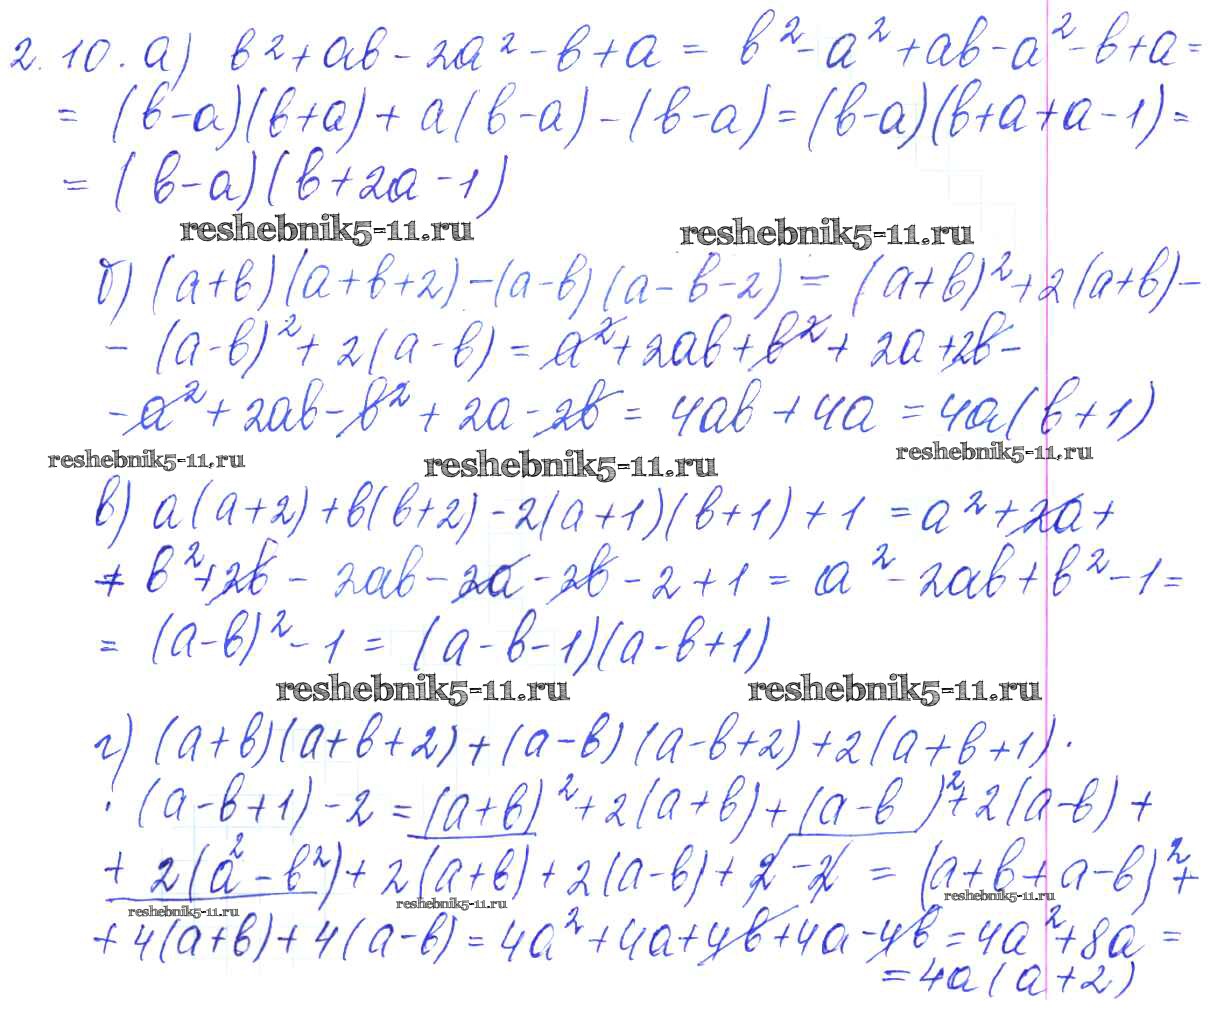 2.10. а) b² + ab - 2a² - b + a = b² - a² + ab - a² - b + a =
= (b-a)(b+a) + a(b-a) - (b-a) = (b-a)(b+a+a-1) =
= (b-a)(b+2a-1)
reshebnik5-11.ru reshebnik5-11.ru
б) (a+b)(a+b+2) - (a-b)(a-b-2) = (a+b)² + 2(a+b) -
- (a-b)² + 2(a-b) = a² + 2ab + b² + 2a + 2b -
- a² + 2ab - b² + 2a - 2b = 4ab + 4a = 4a(b+1)
reshebnik5-11.ru reshebnik5-11.ru reshebnik5-11.ru
в) a(a+2) + b(b+2) - 2(a+1)(b+1) + 1 = a² + 2a +
+ b² + 2b - 2ab - 2a - 2b - 2 + 1 = a² - 2ab + b² - 1 =
= (a-b)² - 1 = (a-b-1)(a-b+1)
reshebnik5-11.ru reshebnik5-11.ru
г) (a+b)(a+b+2) + (a-b)(a-b+2) + 2(a+b+1) ·
· (a-b+1) - 2 = (a+b)² + 2(a+b) + (a-b)² + 2(a-b) +
+ 2(a² - b²) + 2(a+b) + 2(a-b) + 2 - 2 = (a+b+a-b)² +
reshebnik5-11.ru reshebnik5-11.ru reshebnik5-11.ru
+ 4(a+b) + 4(a-b) = 4a² + 4a + 4b + 4a - 4b = 4a² + 8a =
= 4a(a+2)